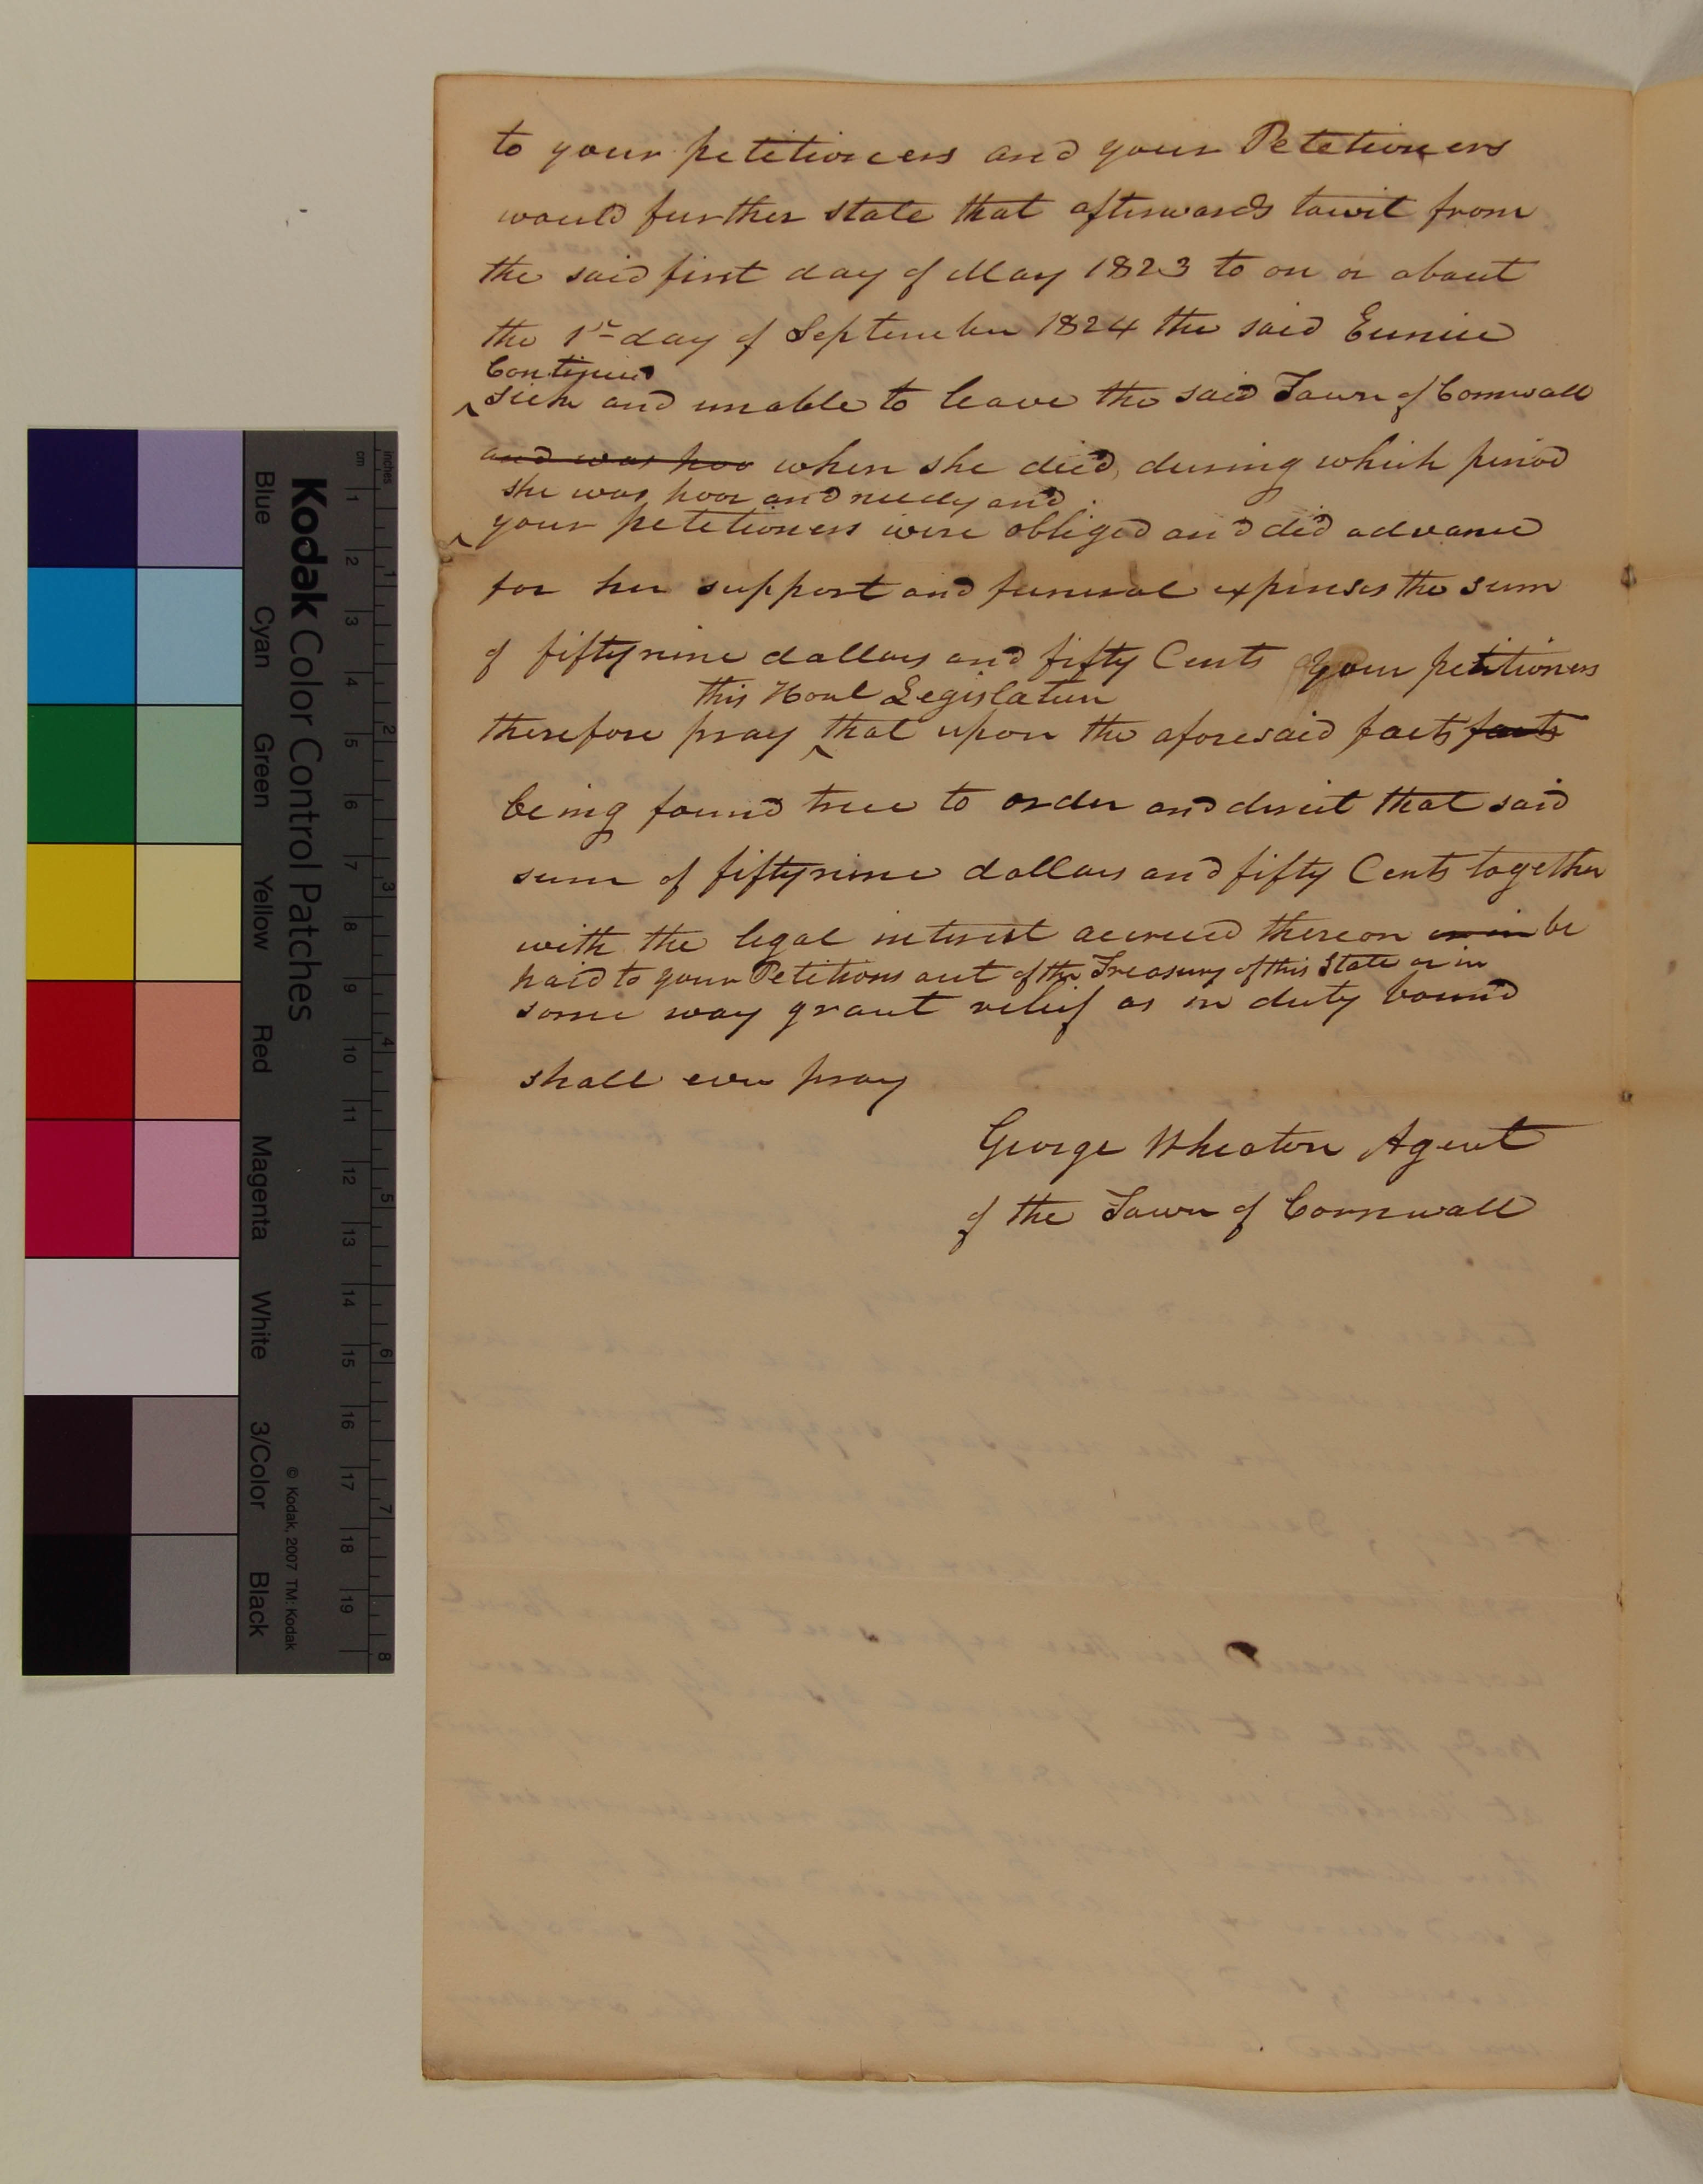 to your petitioners and your Petetioners
would further state that afterwards towit from
the said first day of May 1823 to on or about
the 1st day of September 1824 the said Eunice
Continued
^ sick and unable to leave the said Town of Cornwall
and was poo when she died, during which period
she was poor and needy and
^ your petetioners were obliged and did advance
for her support and funeral expenses the sum
of fiftynine dollars and fifty Cents your petitioners
this Honl Legislature
therefore pray ^ that upon the aforesaid facts facts
being found true to order and direct that said
sum of fiftynine dollars and fifty Cents together
with the legal interest accrued thereon or in be
paid to your Petitions out of the Treasury of this State or in
some way grant relief as in duty bound
shall ever pray
George Wheaton Agent
of the Town of Cornwall
Kodak Color Control Patches
© Kodak, 2007 TM: Kodak
Blue Cyan Green Yellow Red Magenta White 3/Color Black
inches 1 2 3 4 5 6 7 8
cm 1 2 3 4 5 6 7 8 9 10 11 12 13 14 15 16 17 18 19